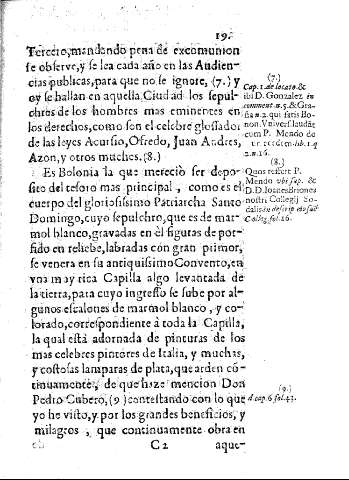 19.
Tercero, mandando pena de excomunion
se observe, y se lea cada año en las Audien-
cias publicas, para que no se ignore, (7.) y
oy se hallan en aquella Ciudad los sepul-
chros de los hombres mas eminentes en
los derechos, como son el celebre glossador
de las leyes Acursio, Ofredo, Juan Andres,
Azon, y otros muchos. (8.)
Es Bolonia la que mereciò ser depo-
sito del tesoro mas principal, como es el
cuerpo del gloriosissimo Patriarcha Santo
Domingo, cuyo sepulchro, que es de mar-
mol blanco, gravadas en èl figuras de por-
fido en reliebe, labradas con gran primor,
se venera en su antiquissimo Convento, en
vna muy rica Capilla algo levantada de
la tierra, para cuyo ingresso se sube por al-
gunos escalones de marmol blanco, y co-
lorado, correspondiente à toda la Capilla,
la qual està adornada de pinturas de los
mas celebres pintores de Italia, y muchas,
y costosas lamparas de plata, que arden cõ-
tinuamente, de que haze mencion Don
Pedro Cubero, (9) contestando con lo que
yo he visto, y por los grandes beneficios, y
milagros, que continuamente obra en
C 2 aque-
(7.)
Cap. 1. de locato &
ibi D. Gonzalez in
comment. n. 5. & Gra-
ña n. 2. qui satis Bo-
non. Vnivers. laudãt,
cum P. Mendo de
iur. academ. lib. 1. q.
2. n. 16.
(8.)
Quos refert P.
Mendo vbi sup. &
D. D. Ioanes Briones
nostri Collegij So-
dalis in descrip. de sui
Colleg. fol. 16.
(9.)
d. cap. 6. fol. 43.